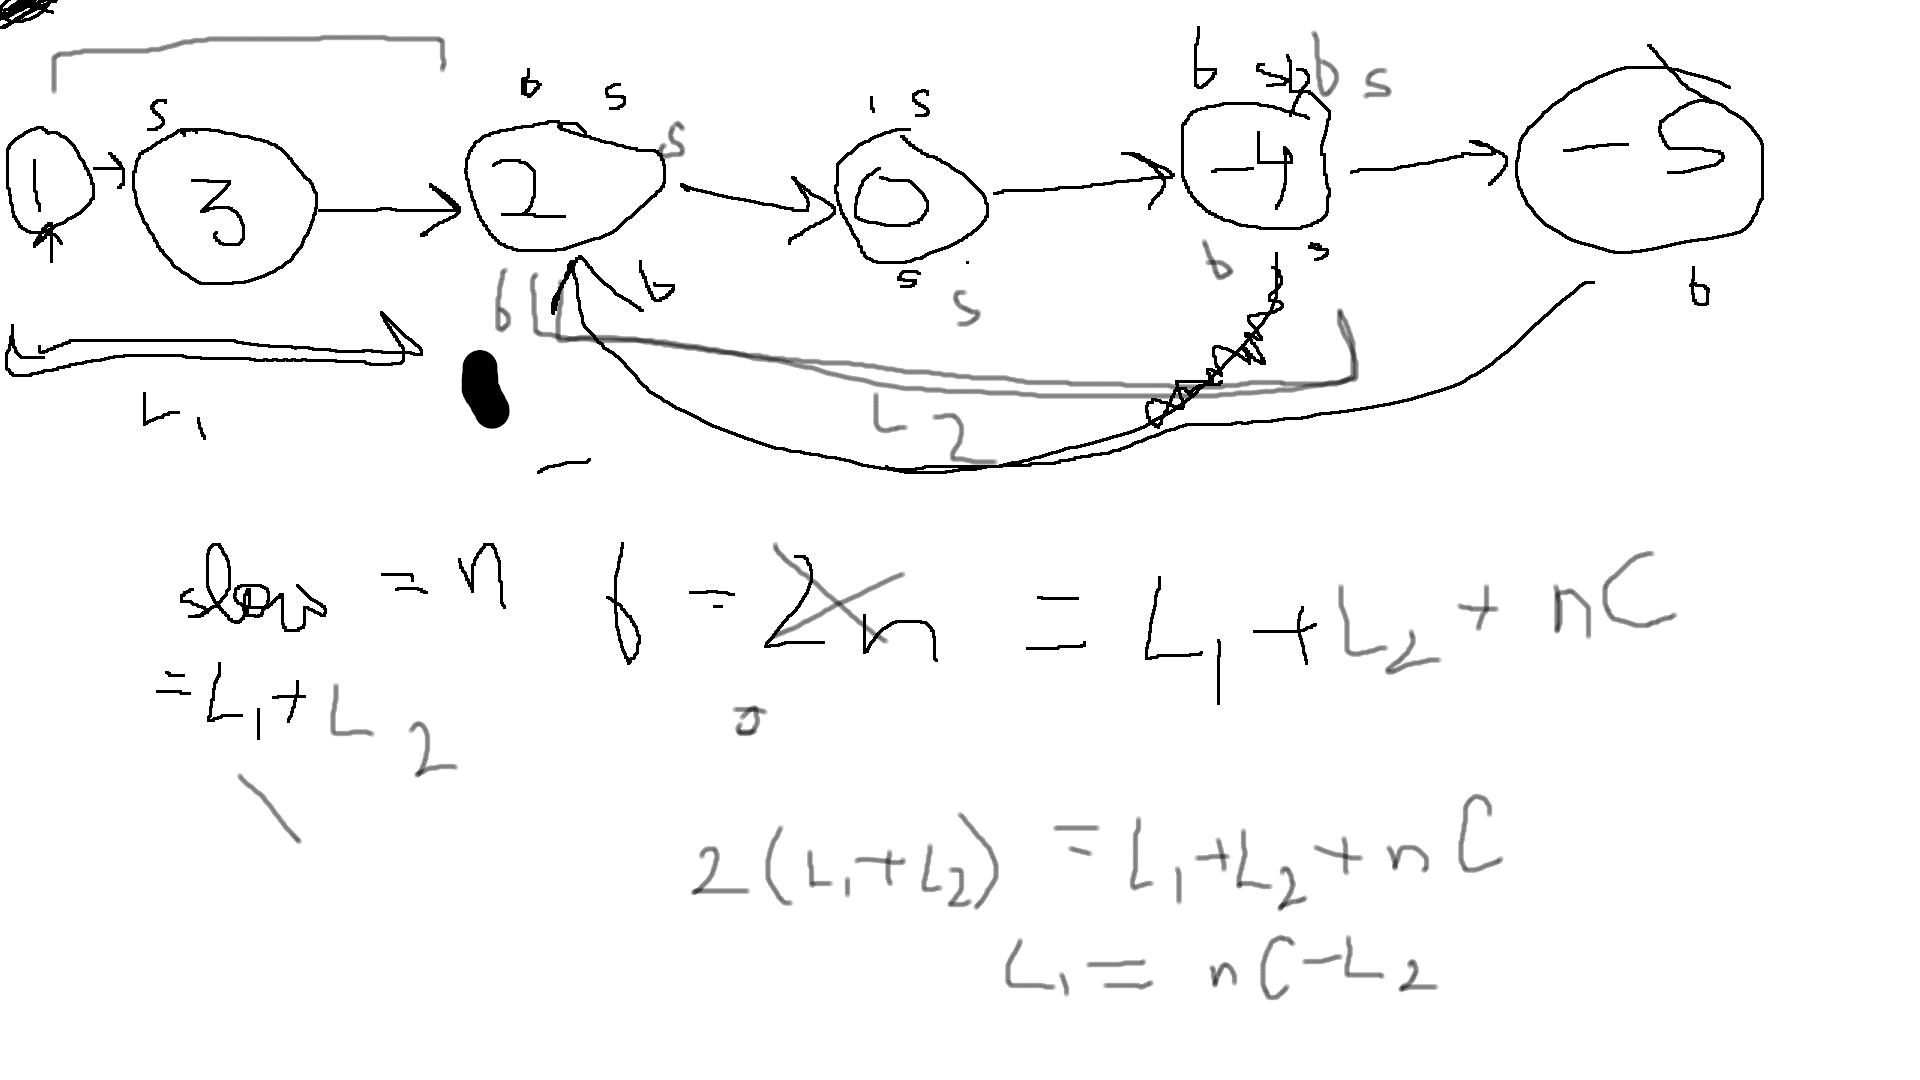 b s b s b b s
s s s
1 3 2 0 -4 -5
b b s b s b
s s
L1 L2
slow = n f = 2n = L1 + L2 + nC
= L1 + L2
2(L1+L2) = L1+L2+nC
L1 = nC-L2